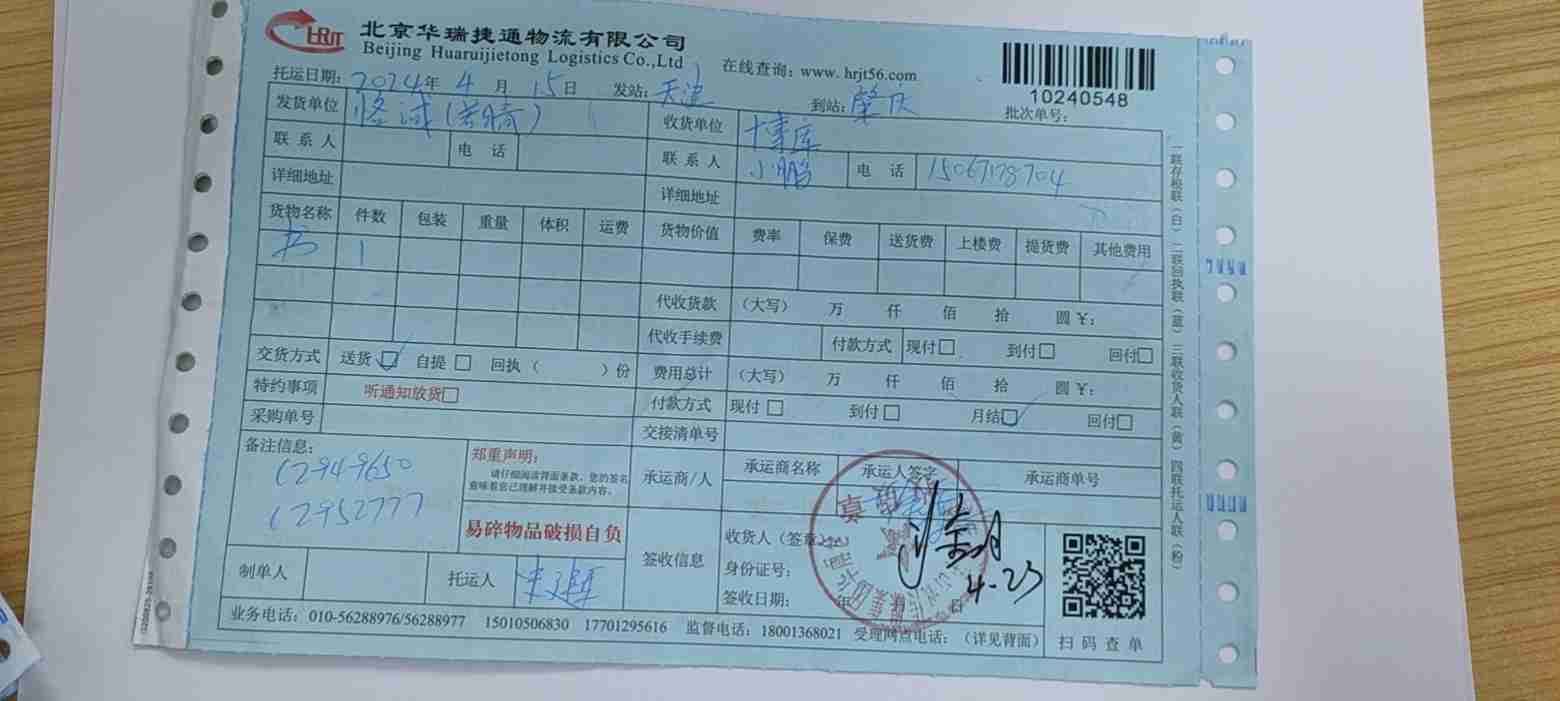 HRJT 北京华瑞捷通物流有限公司
Beijing Huaruijietong Logistics Co.,Ltd
在线查询：www. hrjt56.com
10240548
托运日期：2024年 4 月 15 日 发站：天津 到站：肇庆 批次单号：
发货单位 收货单位 博库
联系人 电话 联系人 小鹏 电话
详细地址 详细地址
货物名称 件数 包装 重量 体积 运费 货物价值 费率 保费 送货费 上楼费 提货费 其他费用
书 1
代收货款 （大写） 万 仟 佰 拾 圆 ¥：
代收手续费 付款方式 现付□ 到付□ 回付□
交货方式 送货☑ 自提□ 回执（ ）份 费用总计 （大写） 万 仟 佰 拾 圆 ¥：
特约事项 听通知放货□ 付款方式 现付□ 到付□ 月结☑ 回付□
采购单号 交接清单号
备注信息：
62949650
62952777
郑重声明：
请仔细阅读背面条款，您的签名
意味着您已理解并接受条款内容。
易碎物品破损自负
承运商/人 承运商名称 承运人签字 承运商单号
签收信息 收货人（签章）
身份证号：
签收日期： 年 月 日 4-23
制单人 托运人
扫码查单
业务电话：010-56288976/56288977 15010506830 17701295616 监督电话：18001368021 受理网点电话：（详见背面）
一联存根联（白）二联回执联（蓝）三联收货人联（黄）四联托运人联（粉）